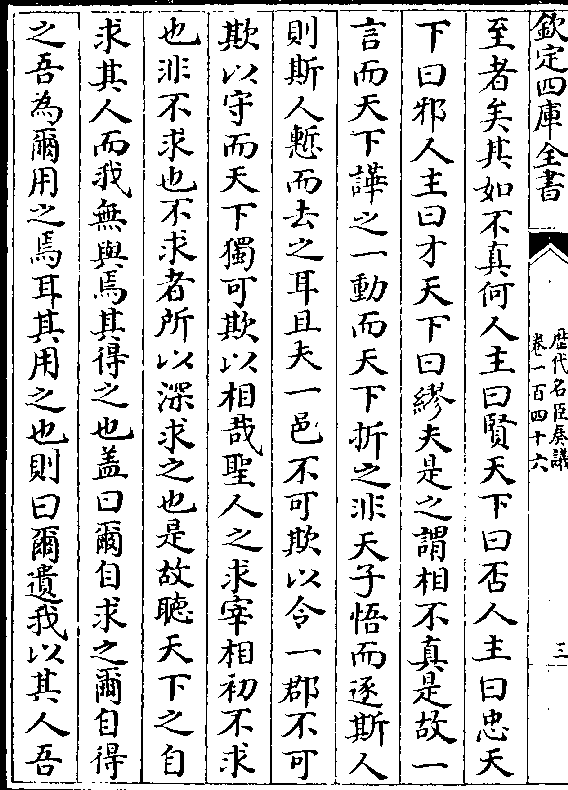 欽定四庫全書
歴代名臣奏議
卷一百四十六
三
至者矣其如不真何人主曰賢天下曰否人主曰忠天
下曰邪人主曰才天下曰繆夫是之謂相不真是故一
言而天下譁之一動而天下折之非天子悟而逐斯人
則斯人慙而去之耳且夫一邑不可欺以令一郡不可
欺以守而天下獨可欺以相哉聖人之求宰相初不求
也非不求也不求者所以深求之也是故聽天下之自
求其人而我無與焉其得之也盖曰爾自求之爾自得
之吾為爾用之焉耳其用之也則曰爾遺我以其人吾